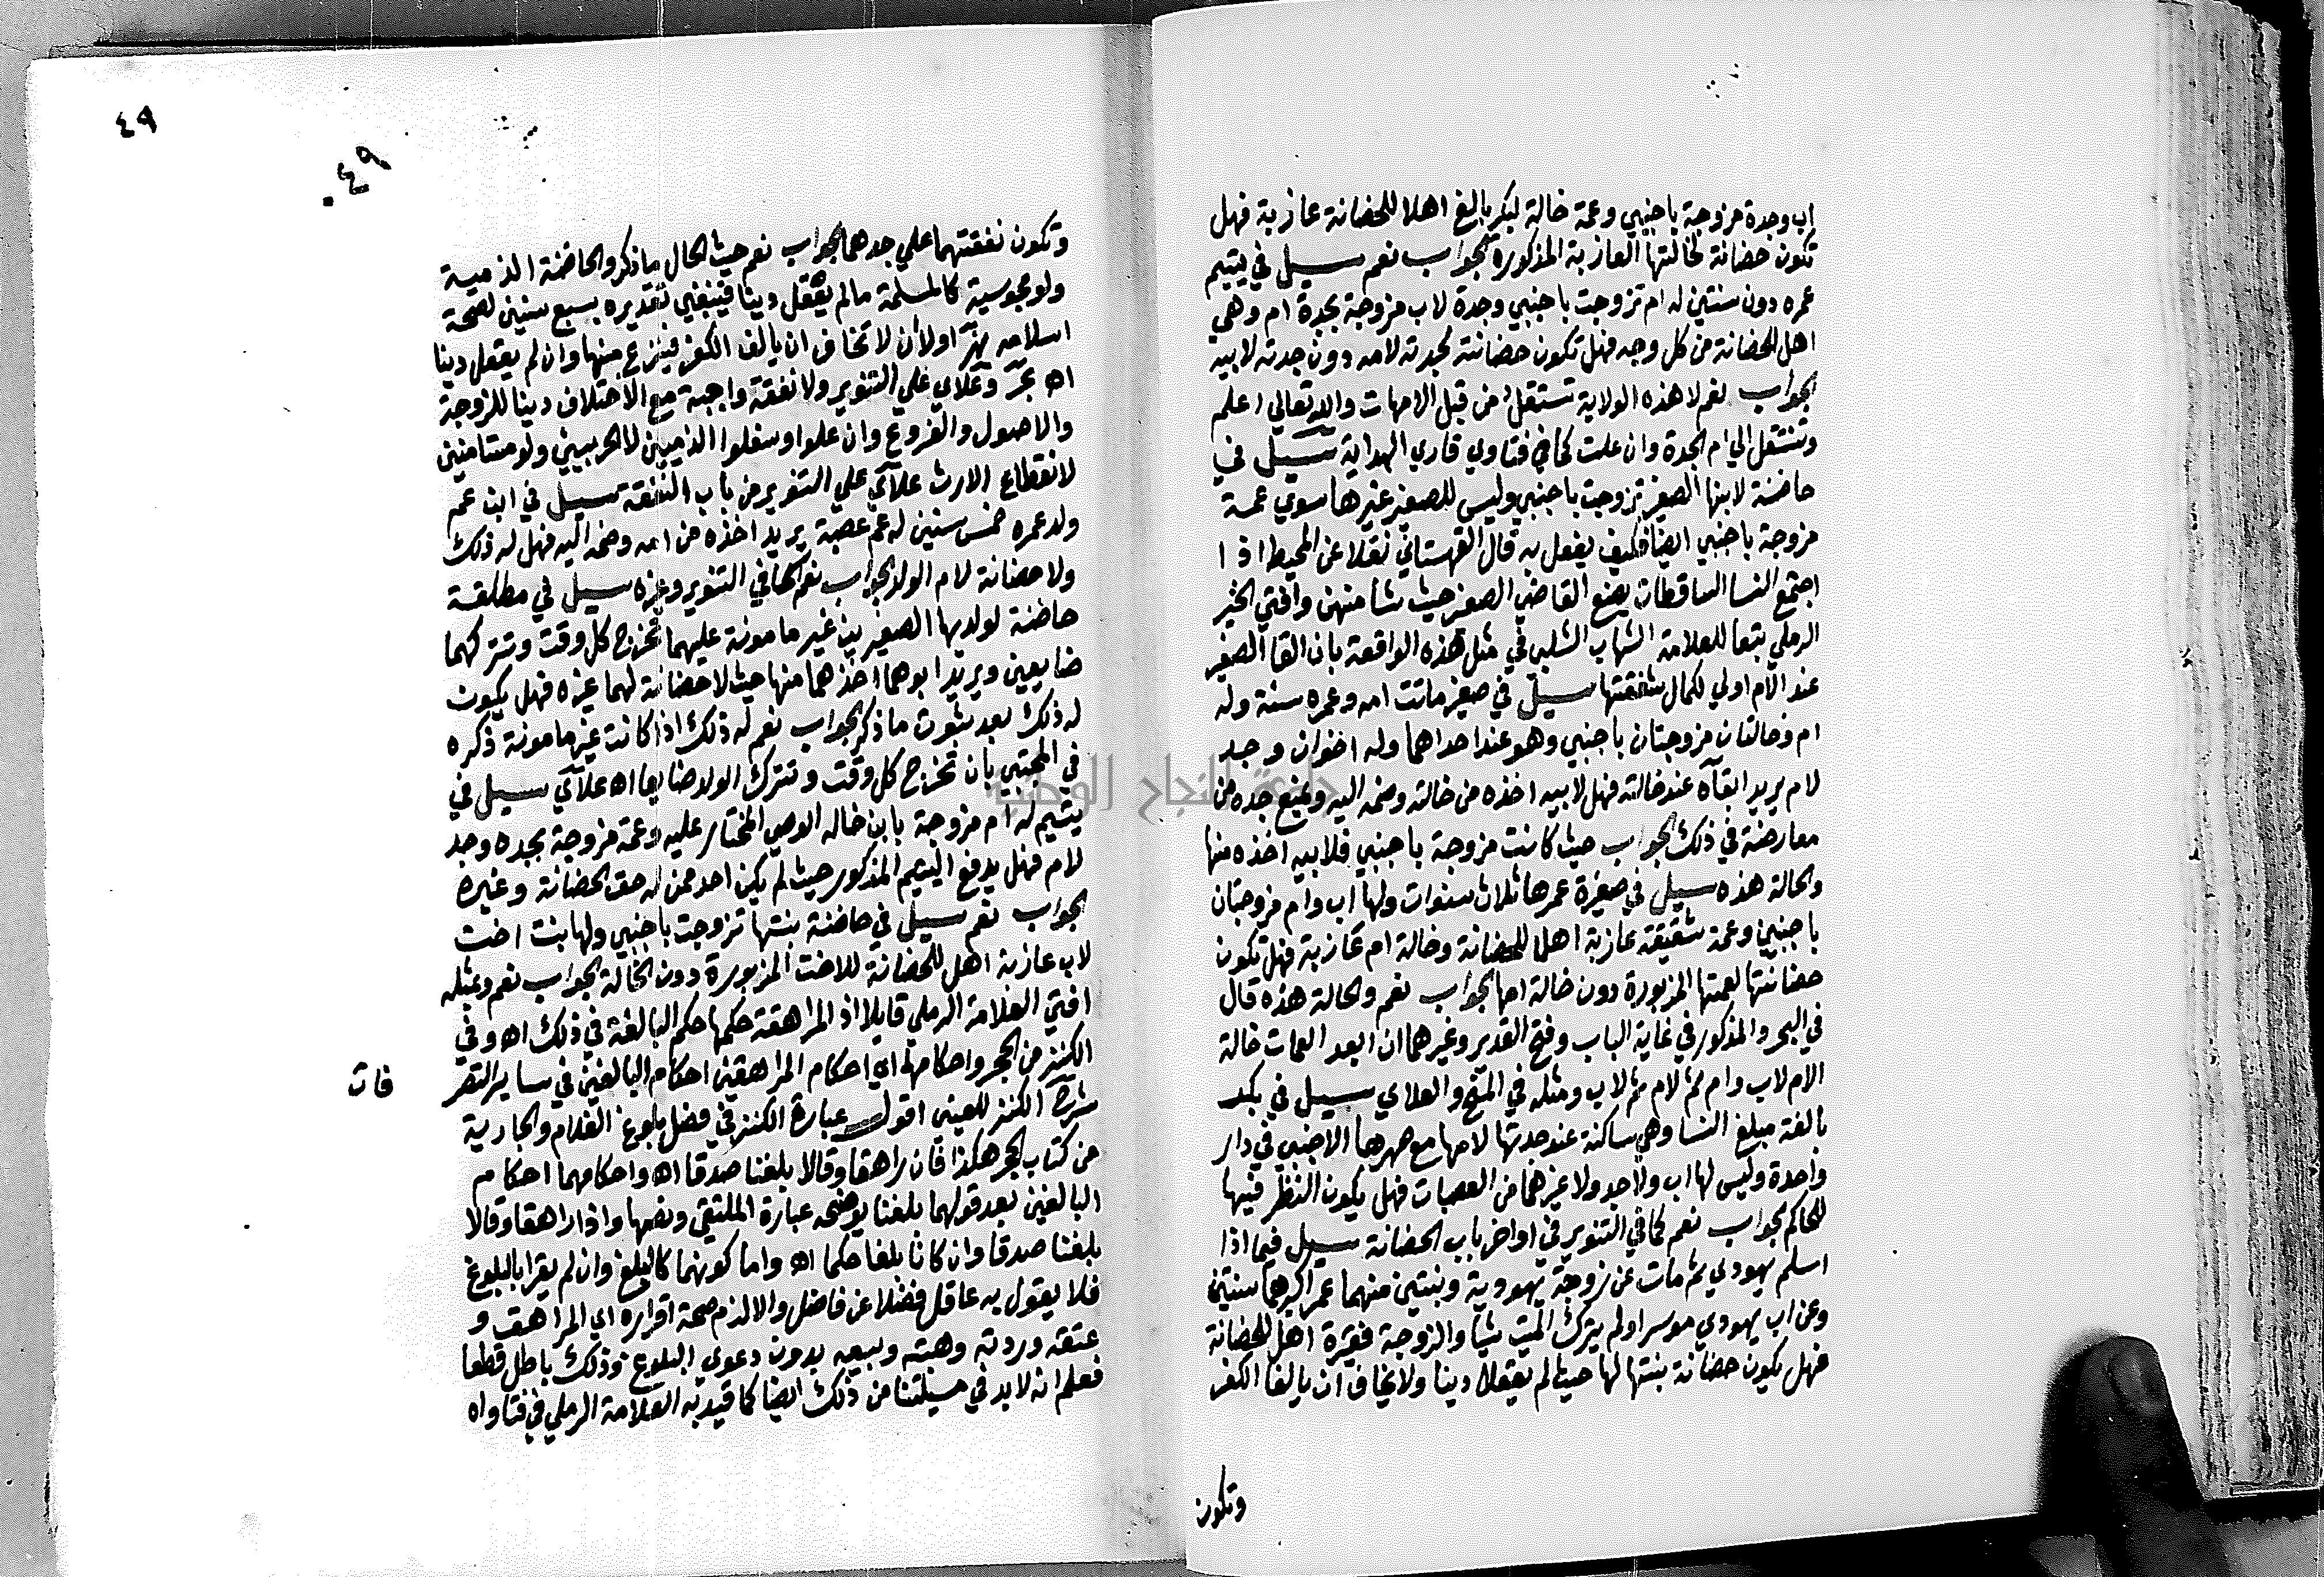 اب وجدة مزوجة باجنبي وعمة خالة لبكر بالغ اهلا للحضانة عازبة فهل
تكون حضانة لخالتها العازبة المذكورة الجواب نعم سيل في يتيم
عمره دون سنتين له ام تزوجت باجنبي وجدة لاب مزوجة بجدة ام وهي
اهل للحضانة من كل وجه فهل تكون حضانته لجدته لامه دون جدته لابيه
الجواب نعم لا هذه الولاية تستقل من قبل الامهات والله تعالي اعلم
وتنتقل الي ام الجدة وان علت كما في فتاوي قاري الهداية سيل في
حاضنة لابنها الصغير تزوجت باجنبي وليس للصغير غيرها سوي عمة
مزوجة باجنبي ايضا فكيف يفعل به قال القهستاني نقلا عن المحيط اذا
اجتمع النسا الساقطات يضع القاضي الصغير حيث شا منهن وافتي الخير
الرملي تبعا للعلامة الشهاب الشلبي في مثل هذه الواقعة بان القا الصغير
عند الام اولي لكمال شفقتها سيل في صغير ماتت امه وعمره سنة وله
ام وخالتان مزوجتان باجنبي وهو عند احداهما وله اخوان وجد
لام يريد ابقاه عند خالته فهل لابيه اخذه من خالته وضمه اليه ويمنع جده من
معارضة في ذلك الجواب حيث كانت مزوجة باجنبي فلابيه اخذه منها
والحالة هذه سيل في صغيرة عمرها ثلاث سنوات ولها اب وام مزوجتان
باجنبين وعمة شقيقة عازبة اهلا للحضانة وخالة ام عازبة فهل تكون
حضانتها لعمتها المزبورة دون خالة امها الجواب نعم والحالة هذه قال
في البحر والمذكور في غاية الباب وفتح القدير وغيرهما ان ابعد العمات خالة
الام لاب وام ثم لام ثم لاب ومثله في المنح والعلاي سيل في بكر
بالغة مبلغ النسا وهي ساكنة عند جدتها لامها مع صهرها الاجنبي في دار
واحدة وليس لها اب ولا جد ولا غيرهما من العصبات فهل يكون النظر فيها
للحاكم الجواب نعم كما في التنوير في اواخر باب الحضانة سيل فيما اذا
اسلم يهودي ثم مات عن زوجة يهودية وبنتين منهما عمر اكبرهما سنتين
وعن اب يهودي موسرا ولم يترك الميت شيا والزوجة فقيرة اهل للحضانة
فهل يكون حضانة بنتها لها حيث لم يعقلا دينا ولا يخاف ان يالفا الكفر
وتكون
٤٩
٤٩
وتكون نفقتهما علي جدهما الجواب نعم حيث الحال ما ذكر والحاضنة الذمية
ولو مجوسية كالمسلمة مالم يعقل دينا فينبغي تقديره بسبع سنين لصحة
اسلامه نهر اولان لا تخاف ان يالف الكفر فينزع منها وان لم يعقل دينا
اه بحر وعلاي علي التنوير ولا نفقة واجبة مع الاختلاف دينا للزوجة
والاصول والفروع وان علوا وسفلوا الذميين لا الحربيين ولو مستامنين
لانقطاع الارث علآي علي التنوير من باب النفقة سيل في ابن عم
ولد عمره خمس سنين له عم عصبة يريد اخذه من امه وضمه اليه فهل له ذلك
ولا حضانة لام الولد الجواب نعم كما في التنوير وغيره سيل في مطلقة
حاضنة لولديها الصغيرين غير مامونة عليهما تخرج كل وقت وتتركهما
ضايعين ويريد ابوهما اخذهما منها حيث لا حضانة لهما غيره فهل يكون
له ذلك بعد ثبوت ما ذكر الجواب نعم له ذلك اذا كانت غير مامونة ذكره
في المجتبي بان تخرج كل وقت وتترك الولد ضايعا اه علآي سيل في
يتيم له ام مزوجة بابن خاله الوصي المختار عليه وعمة مزوجة بجده وجد
لام فهل يدفع اليتيم المذكور حيث لم يكن احد ممن له حق الحضانة وغيره
الجواب نعم سيل في حاضنة بنتها تزوجت باجنبي ولها بنت اخت
لاب عازبة اهل للحضانة للاخت المزبورة دون الخالة الجواب نعم وبمثله
افتي العلامة الرملي قايلا اذ المراهقة حكمها حكم البالغة في ذلك اه وفي
الكنز من الحجر واحكامها اي احكام المراهقين احكام البالغين في ساير التصر
فات
شرح الكنز للعيني اقول عبارة الكنز في فصل بلوغ الغلام والجارية
من كتاب الحجر هكذا فان راهقا وقالا بلغنا صدقا اه واحكامهما احكام
البالغين بعد قولهما بلغنا يوضحه عبارة الملتقي ونصها واذا راهقا وقالا
بلغنا صدقا وان كانا بلغا حكما اه واما كونهما كالبلغ وان لم يقرا بالبلوغ
فلا يقول به عاقل فضلا عن فاضل والا لزم صحة اقراره اي المراهق و
عتقه وردته وهبته وبيعه بدون دعوي البلوغ وذلك باطل قطعا
فعلم انه لابد في مسيلتنا من ذلك ايضا كما قيد به العلامة الرملي في فتاواه
جامعة النجاح الوطنية